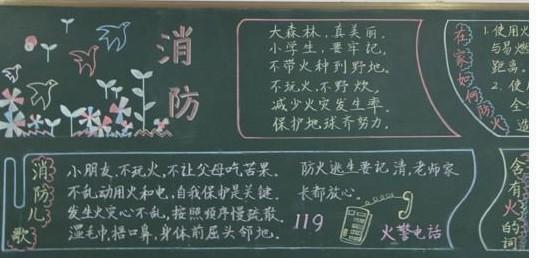 消防
大森林,真美丽.
小学生,要牢记,
不带火种到野地.
不玩火,不野炊,
减少火灾发生率.
保护地球齐努力.
在家如何防火
1.使用火
与易燃
距离.
2.使用
全
造
消防儿歌
小朋友,不玩火,不让父母吃苦果.
不乱动用火和电,自我保护是关键.
发生火灾心不乱,按照顺序慢疏散.
湿毛巾,捂口鼻,身体前屈头邻地.
防火逃生要记清,老师家
长都放心.
119
火警电话
含有火的词